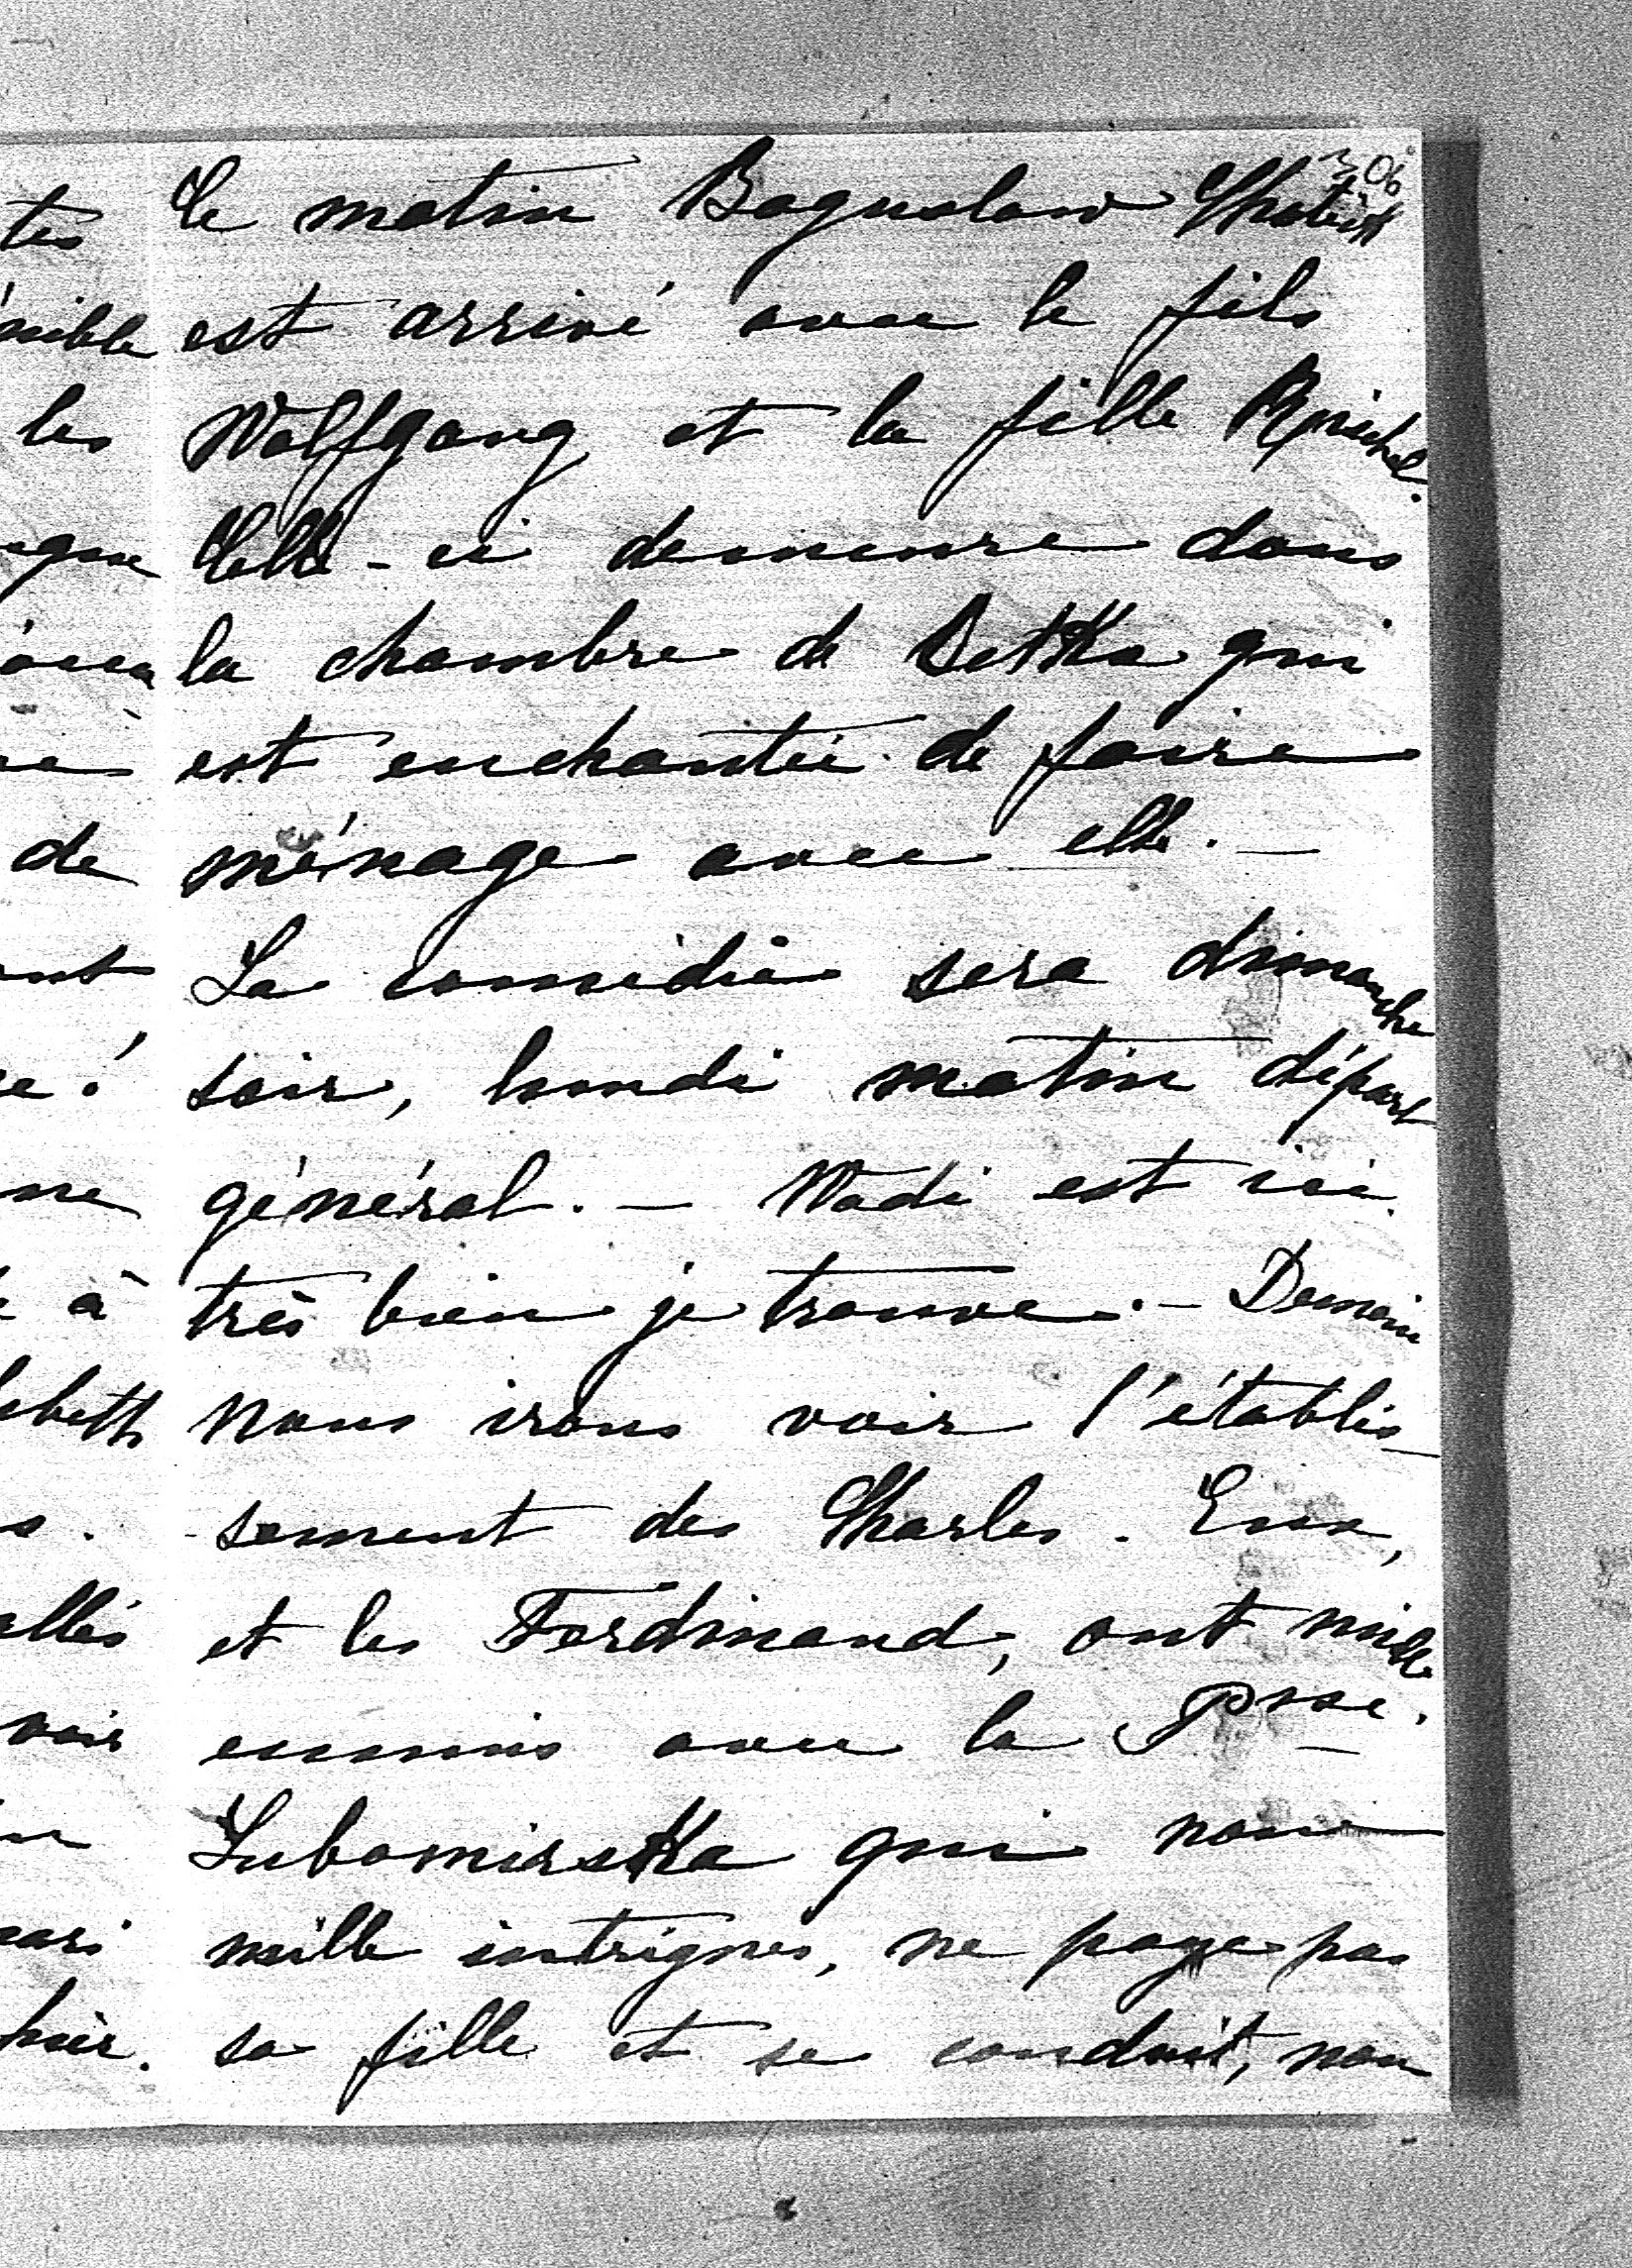 306
Ce matin Boguslaw
est arrivé avec le fils
Wolfgang et la fille
Celle-ci demeure dans
la chambre de Betka qui
est enchantée de faire
ménage avec elle. —
La comédie sera dimanche
soir, lundi matin départ
général. — Wadi est ici
très bien je trouve. — Demain
nous irons voir l'établis-
sement des Charles. Eux,
et les Ferdinand, ont mille
ennuis avec la Psse.
Lubomirska qui
mille intrigues, ne paye pas
sa fille et se conduit, non